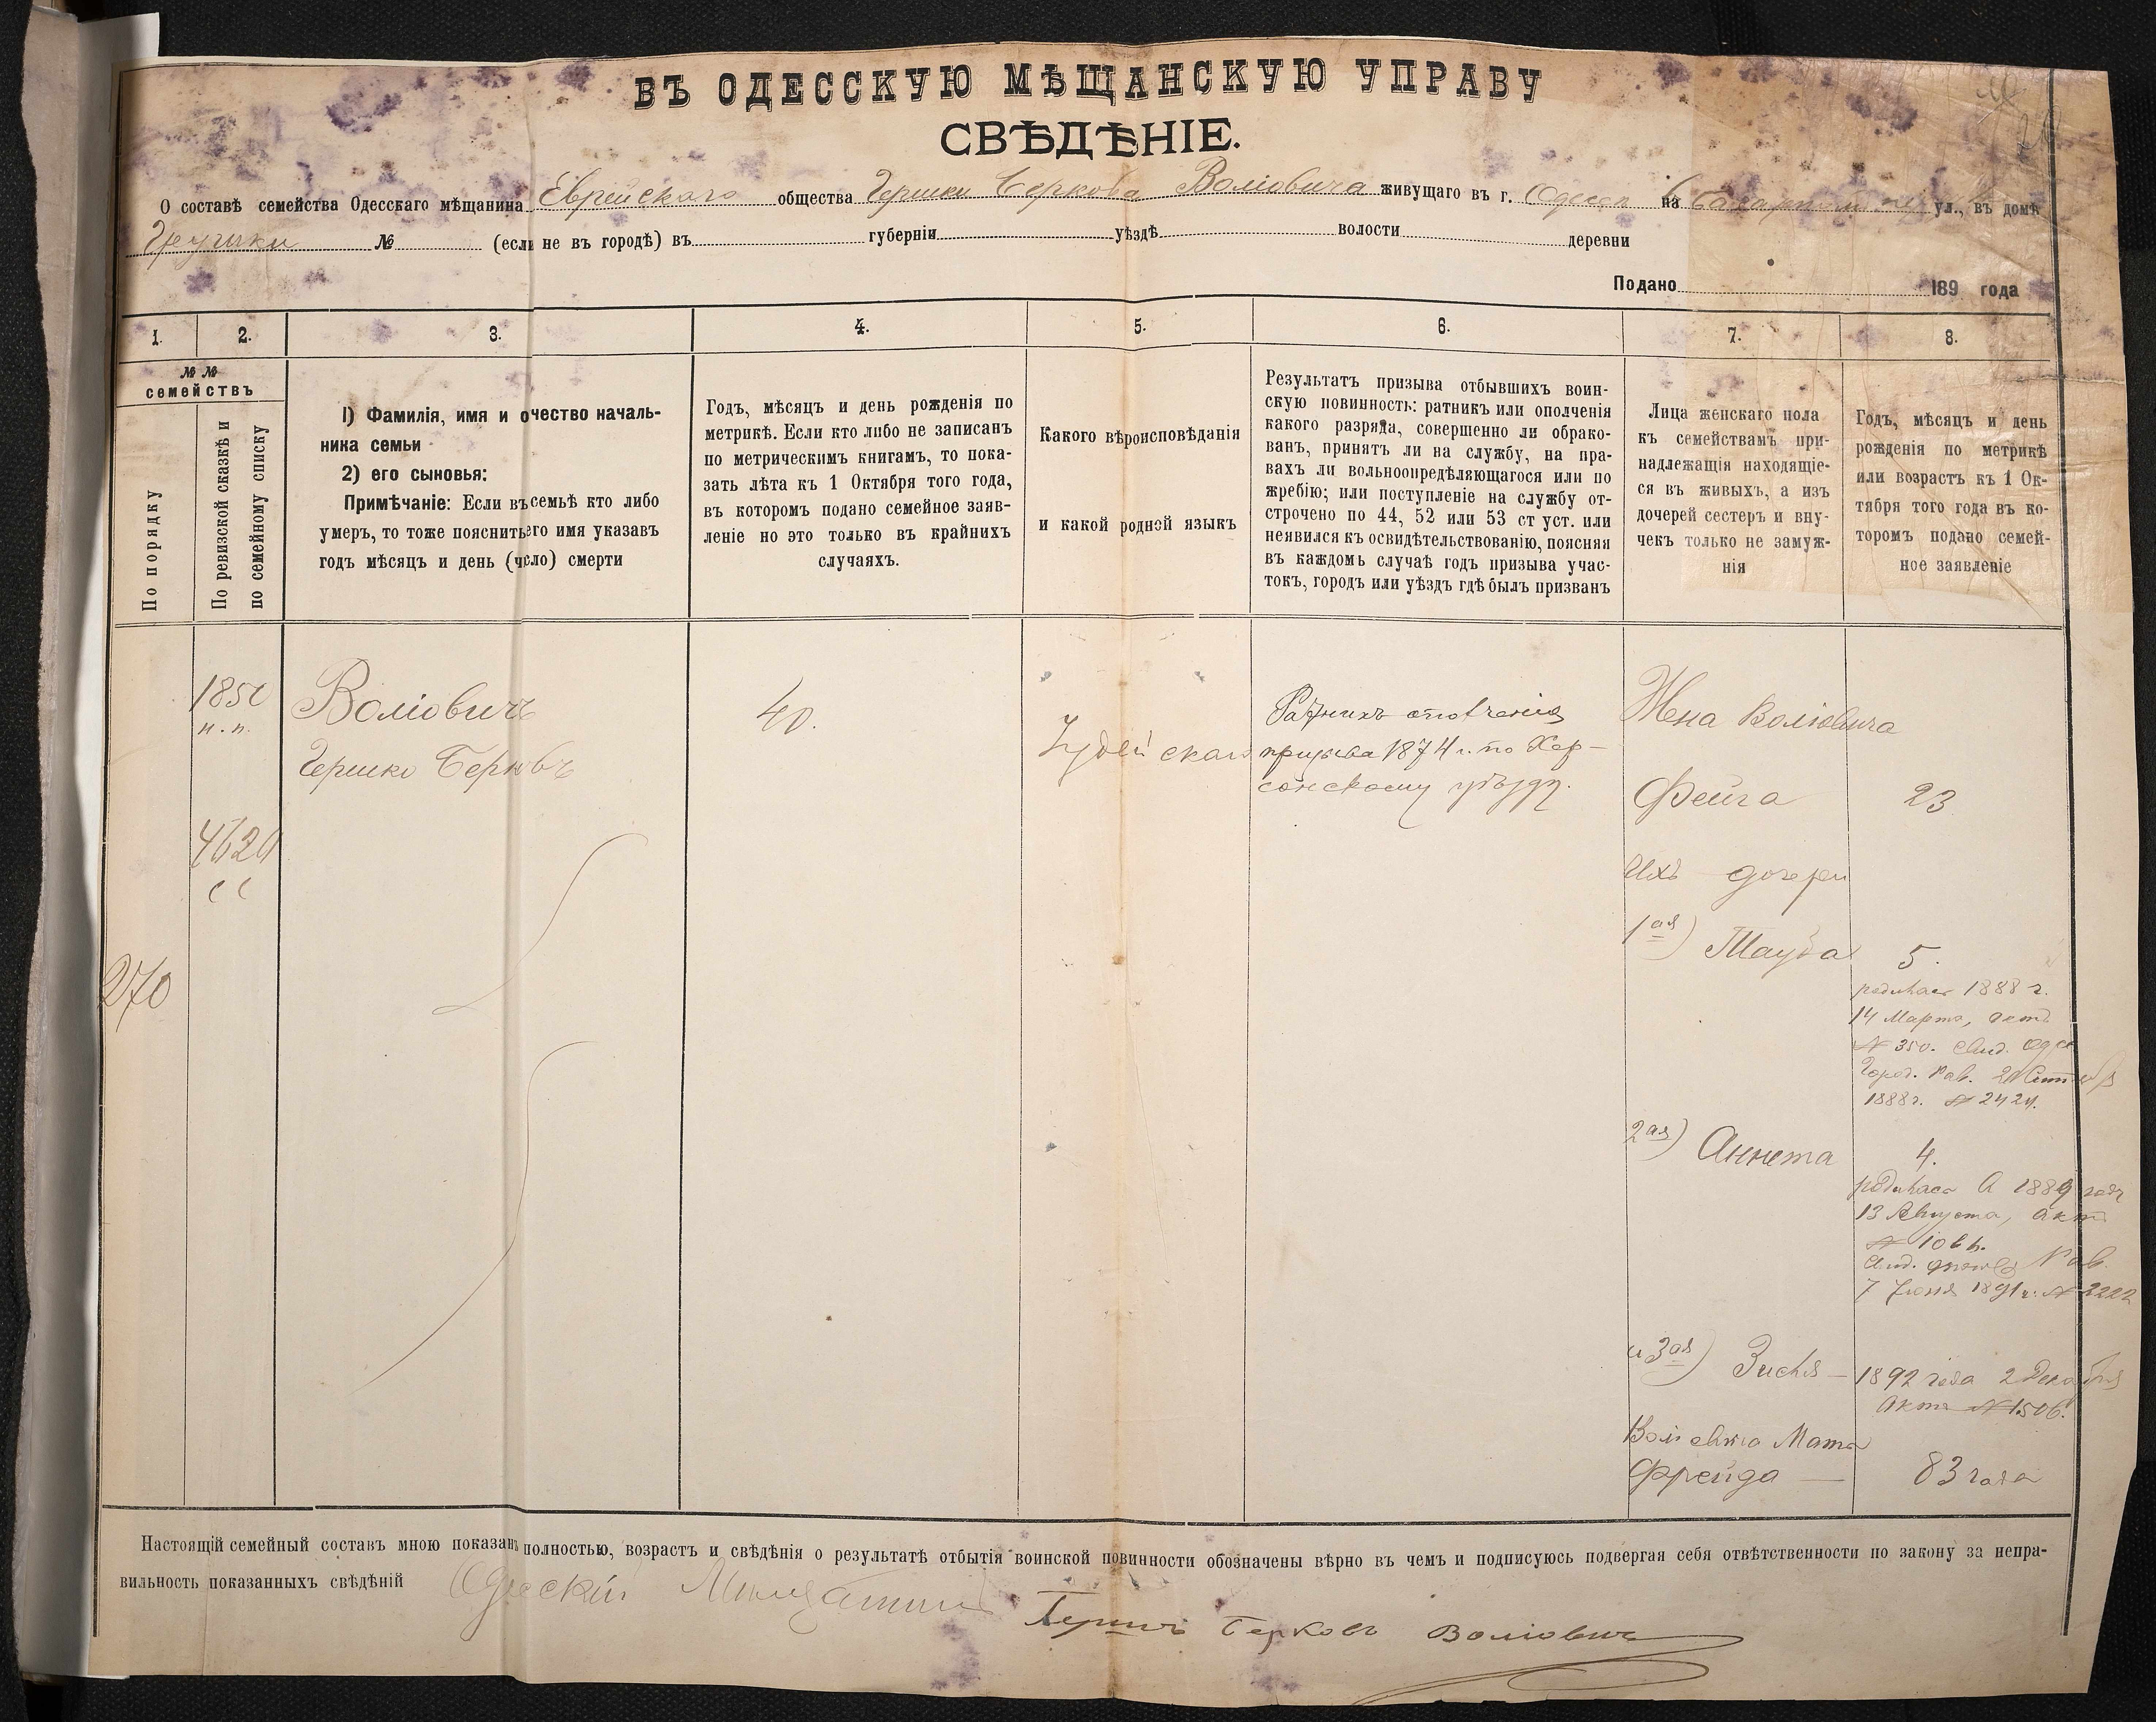 ВЪ ОДЕССКУЮ МѢЩАНСКУЮ УПРАВУ
СВѢДѢНІЕ.
О составѣ семейства Одесскаго мѣщанина Еврейскаго общества Гершки Беркова Воліовича живущаго въ г. Одессѣ на ул., въ домѣ
№ (если не въ городѣ) въ губерніи уѣздѣ волости деревни
Подано 189 года
1. 2. 3. 4. 5. 6. 7. 8.
№ №
семействъ
По порядку
По ревизской сказкѣ и
по семейному списку
1) Фамилія, имя и очество началь-
ника семьи
2) его сыновья:
Примѣчаніе: Если въ семьѣ кто либо
умеръ, то тоже пояснить его имя указавъ
годъ мѣсяцъ и день (число) смерти
Годъ, мѣсяцъ и день рожденія по
метрикѣ. Если кто либо не записанъ
по метрическимъ книгамъ, то пока-
зать лѣта къ 1 Октября того года,
въ которомъ подано семейное заяв-
леніе но это только въ крайнихъ
случаяхъ.
Какого вѣроисповѣданія
и какой родной языкъ
Результатъ призыва отбывшихъ воин-
скую повинность: ратникъ или ополченія
какого разряда, совершенно ли обрако-
ванъ, принятъ ли на службу, на пра-
вахъ ли вольноопредѣляющагося или по
жребію; или поступленіе на службу от-
строчено по 44, 52 или 53 ст уст. или
неявился къ освидѣтельствованію, поясняя
въ каждомъ случаѣ годъ призыва учас-
токъ, городъ или уѣздъ гдѣ былъ призванъ
Лица женскаго пола
къ семействамъ при-
надлежащія находящіе-
ся въ живыхъ, а изъ
дочерей сестеръ и вну-
чекъ только не замуж-
нія
Годъ, мѣсяцъ и день
рожденія по метрикѣ
или возрастъ къ 1 Ок-
тября того года въ ко-
торомъ подано семей-
ное заявленіе
270
1850
н. п.
4620
сс
Воліовичъ
Гершко Берковъ
40.
Іудейскаго
Ратникъ ополченія
призыва 1874 г. по Хер-
сонскому уѣзду.
Жена Воліовича
Фейга 23
Ихъ дочери
1ая) Тауба 5.
родилась 1888 г.
14 Марта, актъ
№ 350. Свид. Одес
Город. Рав. Сентяб
1888 г. № 2424.
2ая) Аннета 4.
родилась 1889 года
13 Августа, актъ
№
Свид. Рав.
7 Іюня 1891 г. № 2222
и 3ая) Зисля — 1892 года 2 Декабря
Актъ № 1506.
Воліовича Мать
Фрейда — 83 года
Настоящій семейный составъ мною показанъ полностью, возрастъ и свѣдѣнія о результатѣ отбытія воинской повинности обозначены вѣрно въ чемъ и подписуюсь подвергая себя отвѣтственности по закону за непра-
вильность показанныхъ свѣдѣній Одескій
Берковъ Воліовичъ